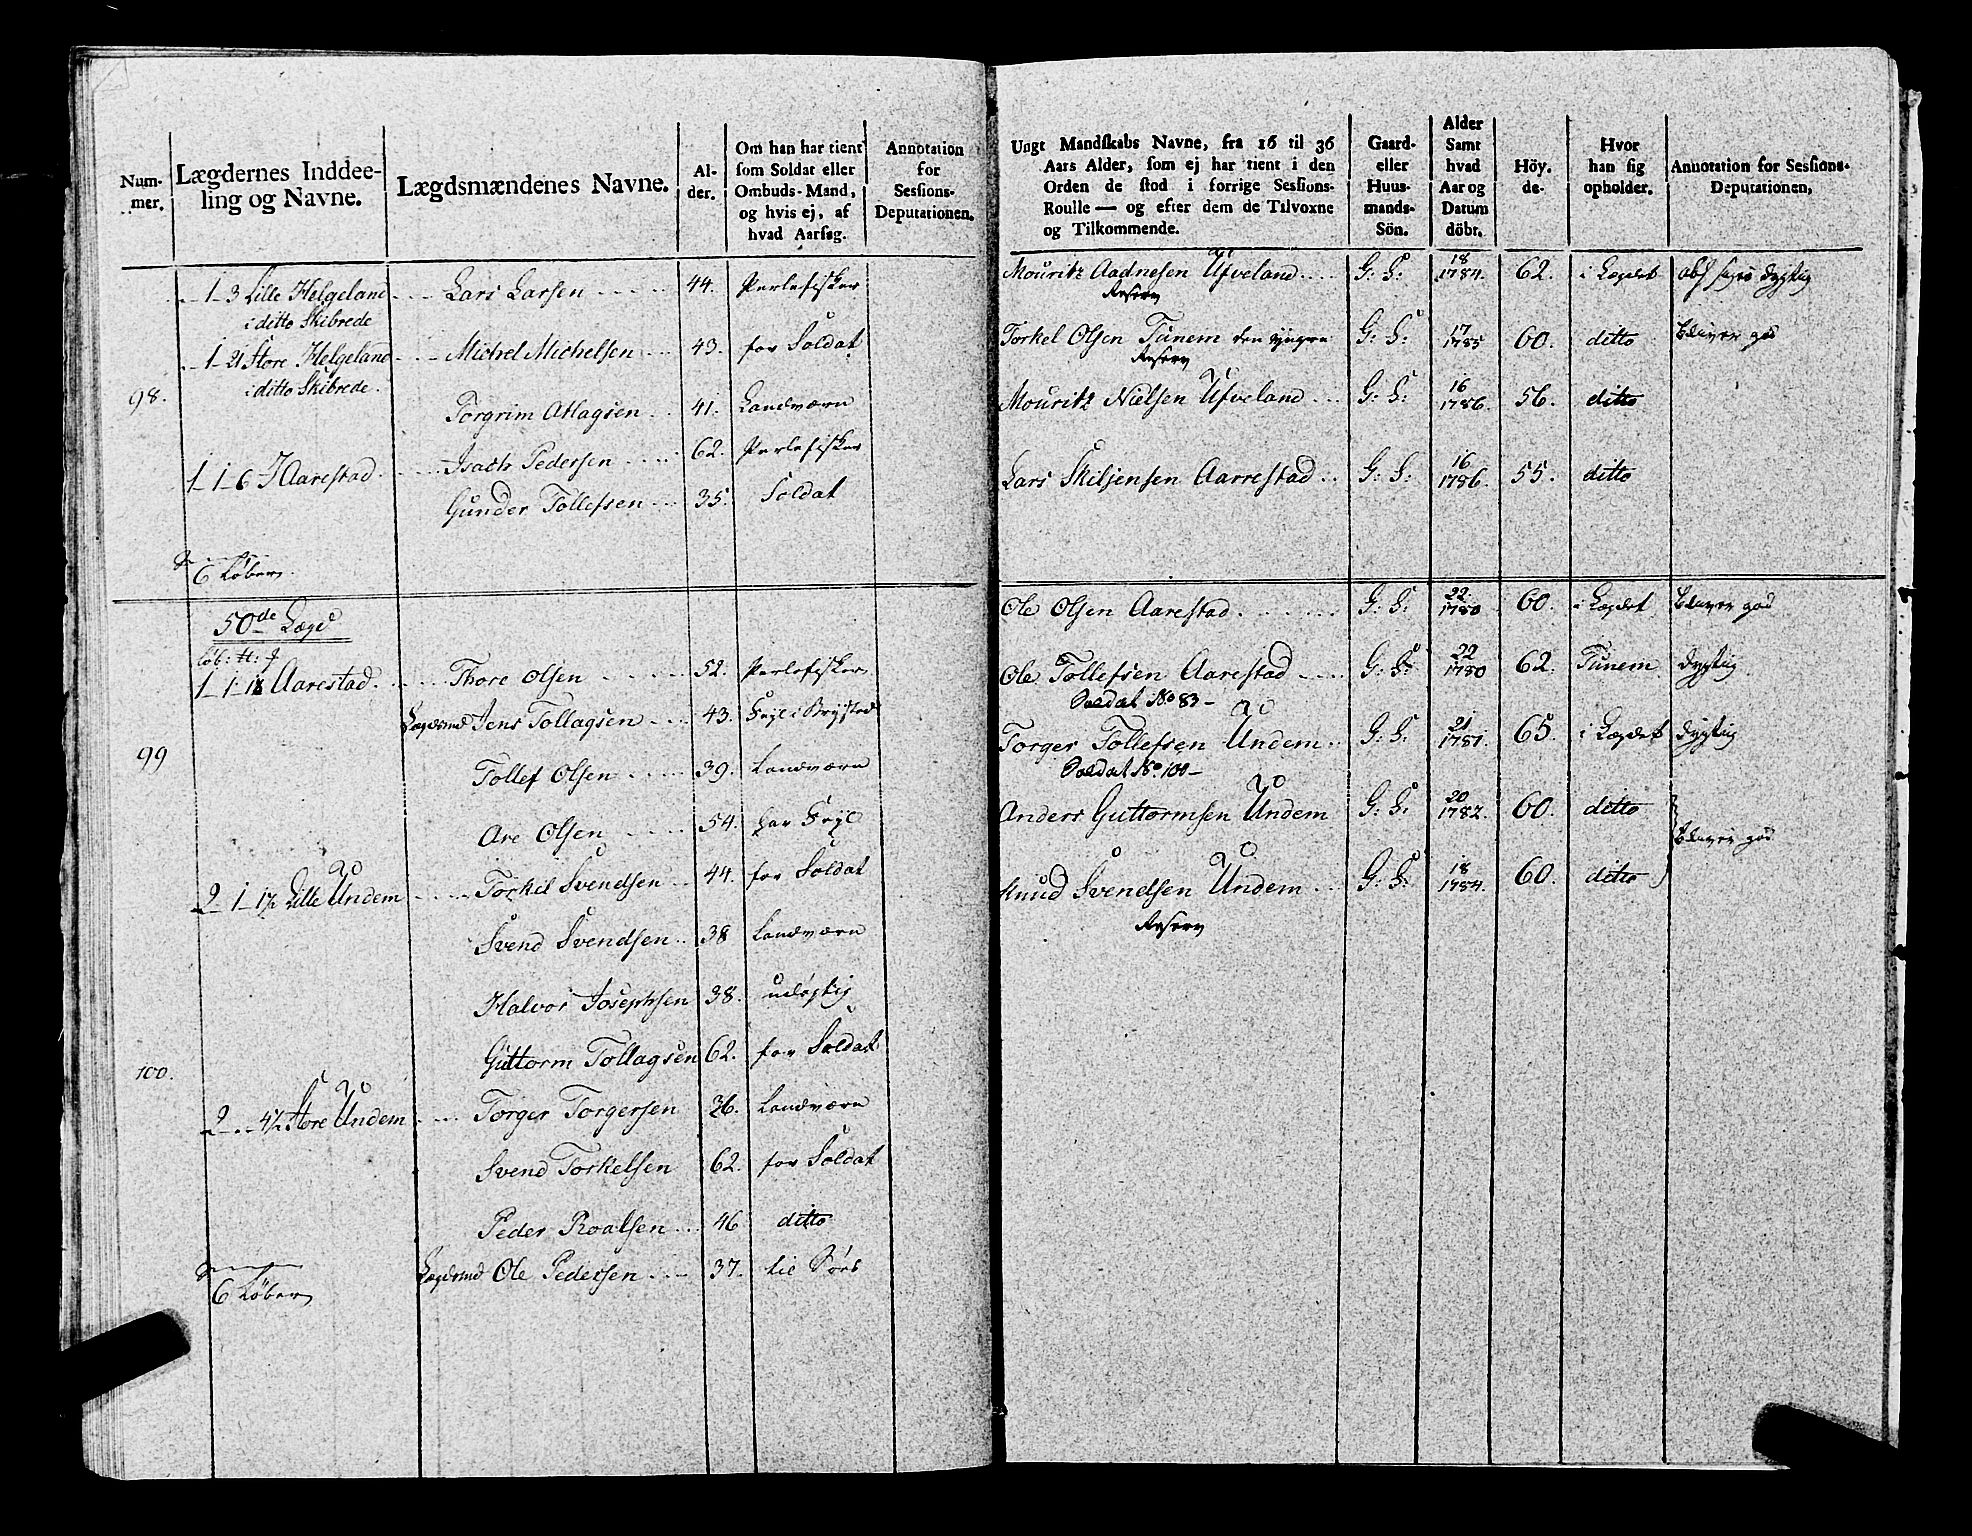 Num-mer.
Lægdernes Inddee-
ling og Navne.
Lægdsmændenes Navne.
Al-
der.
Om han har tient
som Soldat eller
Ombuds-Mand,
og hvis ej, af
hvad Aarsag.
Annotation
for
Sessions-
Deputationen.
98.
1-3 Lille Helgeland Lars Larsen 44. Perlefisker
i ditto Skibrede
1-21 Store Helgeland Michel Michelsen 43. for Soldat
i ditto Skibrede
Torgrim Atlagsen 41. Landværn
Isach Pedersen 62. Perlefisker
1-1-6 I Aarestad.
Gunder Tollefsen 35. Soldat
6 Løber
50de Lægd
Löb: H: f
1-1-18 Aarestad. Thore Olsen 52. Perlefisker
99
Lægdsmd Jens Tollagsen 43. Fejl i Brystet
Tollef Olsen 39. Landværn
Are Olsen 54. har Fejl
2-1-1½ Lille Undem Torkil Svendsen 44. for Soldat
Svend Svendsen 38 Landværn
Halvor Josephsen 38. udøgtig
100.
Guttorm Tollagsen 62. for Soldat
2-.-4½ Store Undem Torger Torgersen 36. Landværn
Svend Torkelsen 62. for Soldat
Peder Roalsen 46 ditto
Lægdsmd Ole Pedersen 37. til Søes
6 Løber
Ungt Mandskabs Navne, fra 16 til 36
Aars Alder, som ej har tient i den
Orden de stod i forrige Sessions-
Roulle — og efter dem de Tilvoxne
og Tilkommende.
Gaard-
eller
Huus-
mands-
Sön.
Alder
Samt
hvad
Aar og
Datum
döbt.
Höy-
de-
Hvor
han sig
opholder.
Annotation for Sessions-
Deputationen,
Mouritz Aadnesen Ufveland G: S: 18 1784. 62. i Lægdet dygtig
Reserv
Torkel Olsen Tunem den yngre G: S: 17 1785 60. ditto bliver god
Reserv
Mouritz Nielsen Ufveland G: S: 16 1786. 56. ditto
Lars Skiljensen Aarrestad G: S: 16 1786. 55. ditto
Ole Olsen Aarestad G: S: 22 1780 60. i Lægdet bliver god
Ole Tollefsen Aarestad G: S: 22 1780 62. Tunem dygtig
Soldat No 83 -
Torger Tollefsen Undem G: S: 21 1781. 65. i Lægdet dygtig
Soldat No. 100 -
Anders Guttormsen Undem G: S: 20 1782. 60. ditto
bliver god
Knud Svendsen Undem G: S: 18 1784. 60. ditto
Reserv